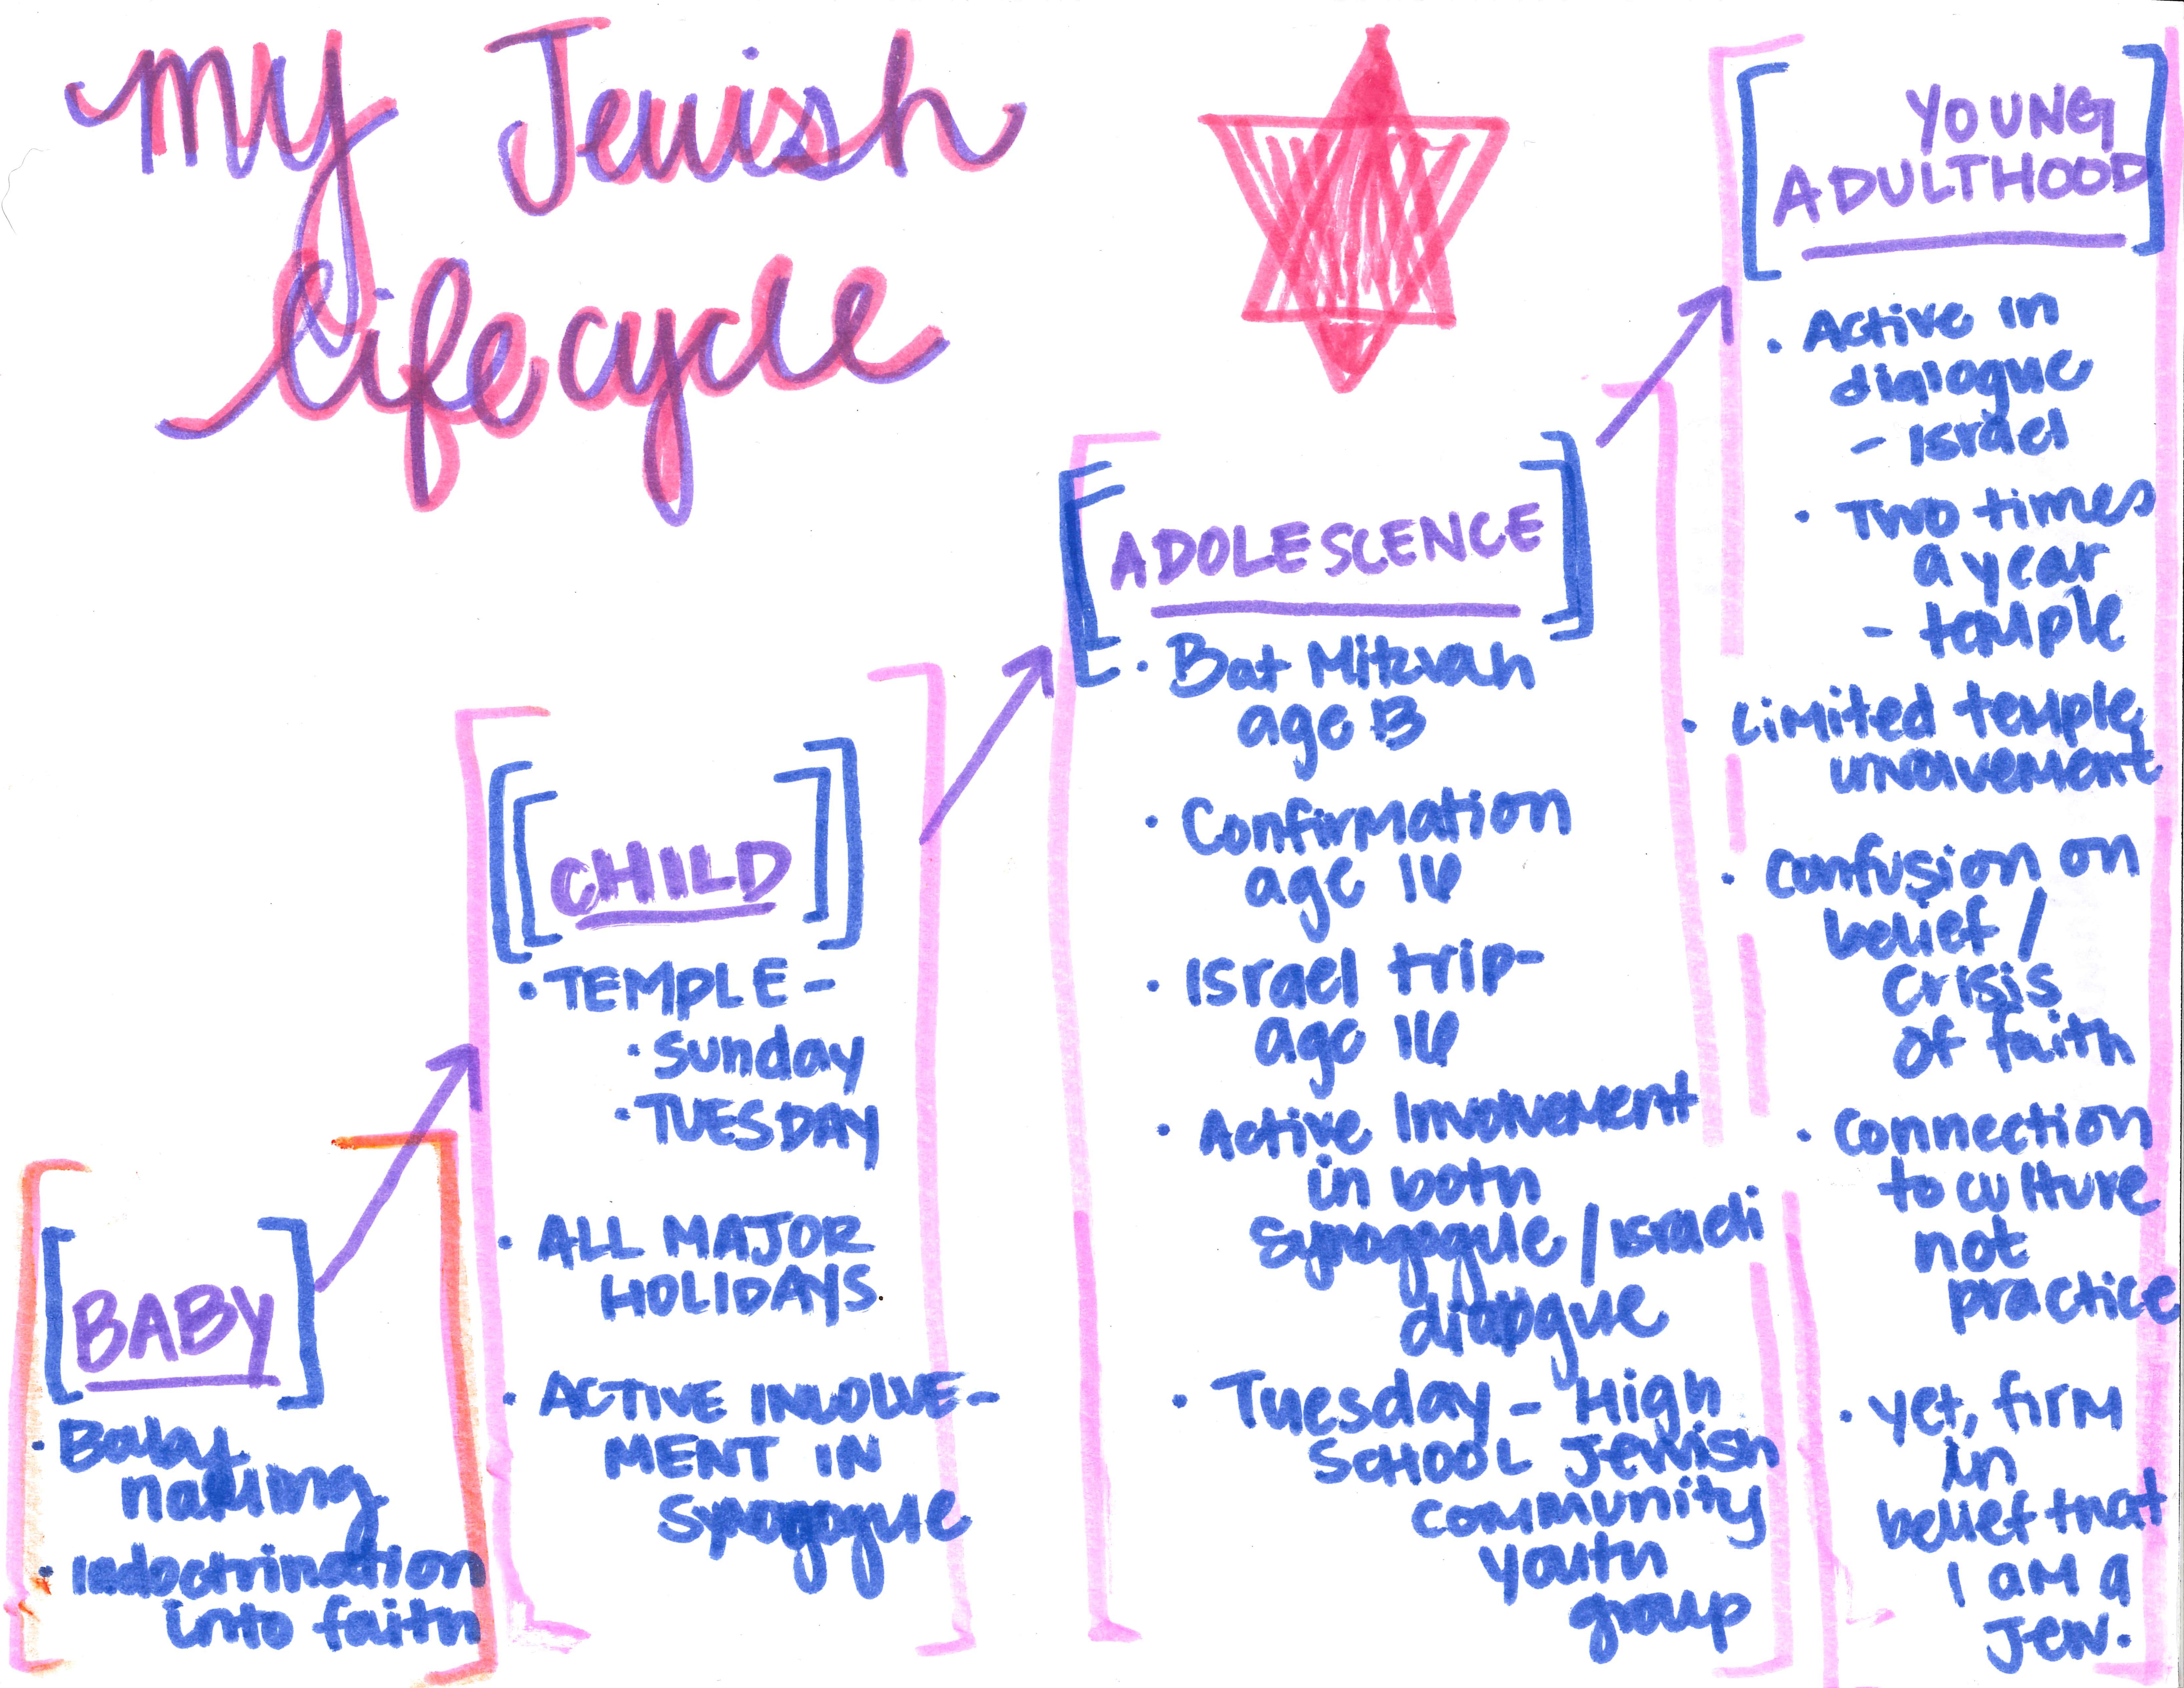 my Jewish
Lifecycle
BABY
• Baby
naming
• indoctrination
into faith
CHILD
• TEMPLE -
• Sunday
• TUESDAY
• ALL MAJOR
HOLIDAYS.
• ACTIVE INVOLVE-
MENT IN
Synagogue
ADOLESCENCE
• Bat Mitzvah
age 13
• Confirmation
age 16
• Israel trip-
age 16
• Active Involvement
in both
Synagogue / Israeli
dialogue
• Tuesday - High
SCHOOL Jewish
community
youth
group
YOUNG
ADULTHOOD
• Active in
dialogue
- Israel
• Two times
a year
- temple
• Limited temple
involvement
• Confusion on
belief /
Crisis
of faith
• Connection
to culture
not
practice
• yet, firm
in
belief that
I am a
Jew.